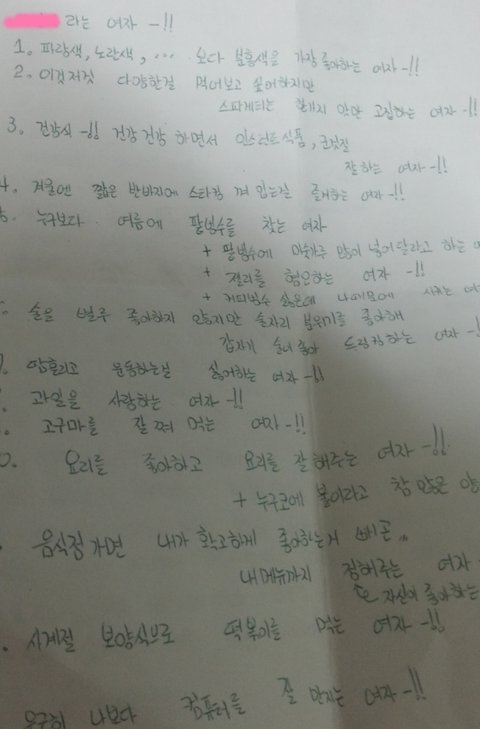 라는 여자 -!!
1. 파랑색, 노란색, ... 보다 보홍색을 가장 좋아하는 여자 -!!
2. 이것저것 다양한걸 먹어보고 싶어하지만
스파게티는 한가지 맛만 고집하는 여자 -!!
3. 건강식 -!! 건강 건강 하면서 인스턴트식품, 군것질
잘하는 여자 -!!
4. 겨울엔 짧은 반바지에 스타킹 껴 입는걸 즐겨하는 여자 -!!
누구보다 여름에 팥빙수를 찾는 여자
+ 팥빙수에 미숫가루 많이 넣어달라고 하는
+ 젤리를 혐오하는 여자 -!!
+ 커피빙수 싫은데 나때문에 시키는
술을 별루 좋아하지 않지만 술자리 분위기를 좋아해
갑자기 술이 좋아 드링킹하는 여자 -!!
땀흘리고 운동하는걸 싫어하는 여자 -!!
과일을 사랑하는 여자 -!!
고구마를 잘 쪄 먹는 여자 -!!
0. 요리를 좋아하고 요리를 잘 해주는 여자 -!!
+ 누구코에 붙이라고 참 많은 양
음식점 가면 내가 확고하게 좋아하는거 빼곤,,
내 메뉴까지 정해주는 여자
또 자신이 좋아하는
사계절 보양식으로 떡볶이를 먹는 여자 -!!
나보다 컴퓨터를 잘 만지는 여자 -!!